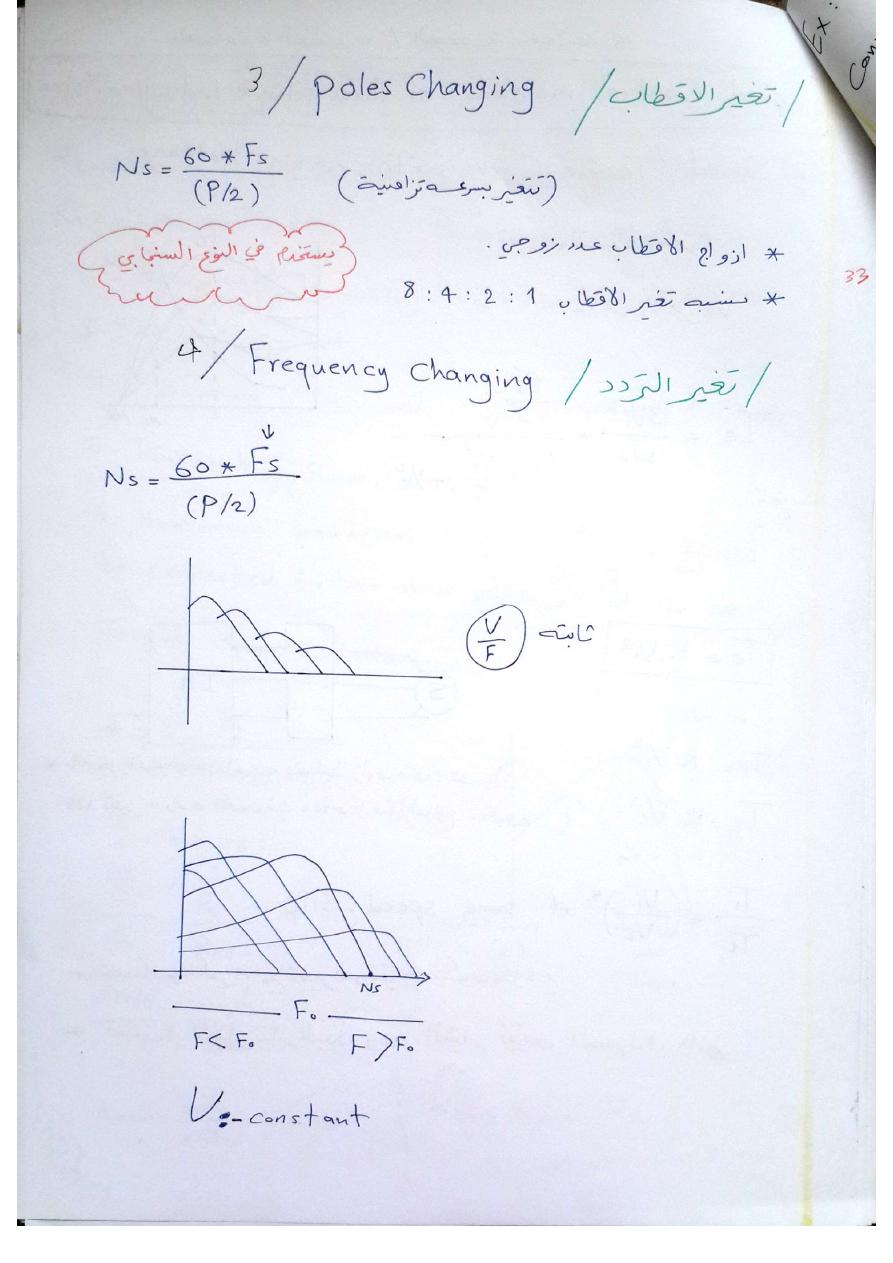 Ex:
Con
3/ poles Changing /تغير الاقطاب/
Ns = 60 * Fs / (P/2) (تتغير بسرعه تزامنية)
* ازواج الاقطاب عدد زوجي.
يستخدم في النوع السنجابي
* نسبه تغير الاقطاب 1 : 2 : 4 : 8
33
4/ Frequency Changing /تغير التردد/
↓
Ns = 60 * Fs / (P/2)
V/F ثابته
Ns
F₀
F < F₀ F > F₀
V:- constant